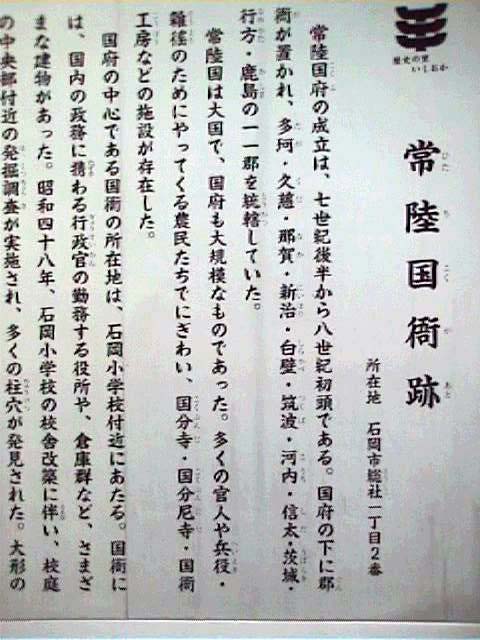 歴史の里
いしおか
常陸国衙跡
所在地　石岡市総社一丁目2番
常陸国府の成立は、七世紀後半から八世紀初頭である。国府の下に郡
衙が置かれ、多珂・久慈・那賀・新治・白壁・筑波・河内・信太・茨城・
行方・鹿島の一一郡を統轄していた。
常陸国は大国で、国府も大規模なものであった。多くの官人や兵役・
雑徭のためにやってくる農民たちでにぎわい、国分寺・国分尼寺・国衙
工房などの施設が存在した。
国府の中心である国衙の所在地は、石岡小学校付近にあたる。国衙に
は、国内の政務に携わる行政官の勤務する役所や、倉庫群など、さまざ
まな建物があった。昭和四十八年、石岡小学校の校舎改築に伴い、校庭
の中央部付近の発掘調査が実施され、多くの柱穴が発見された。大形の